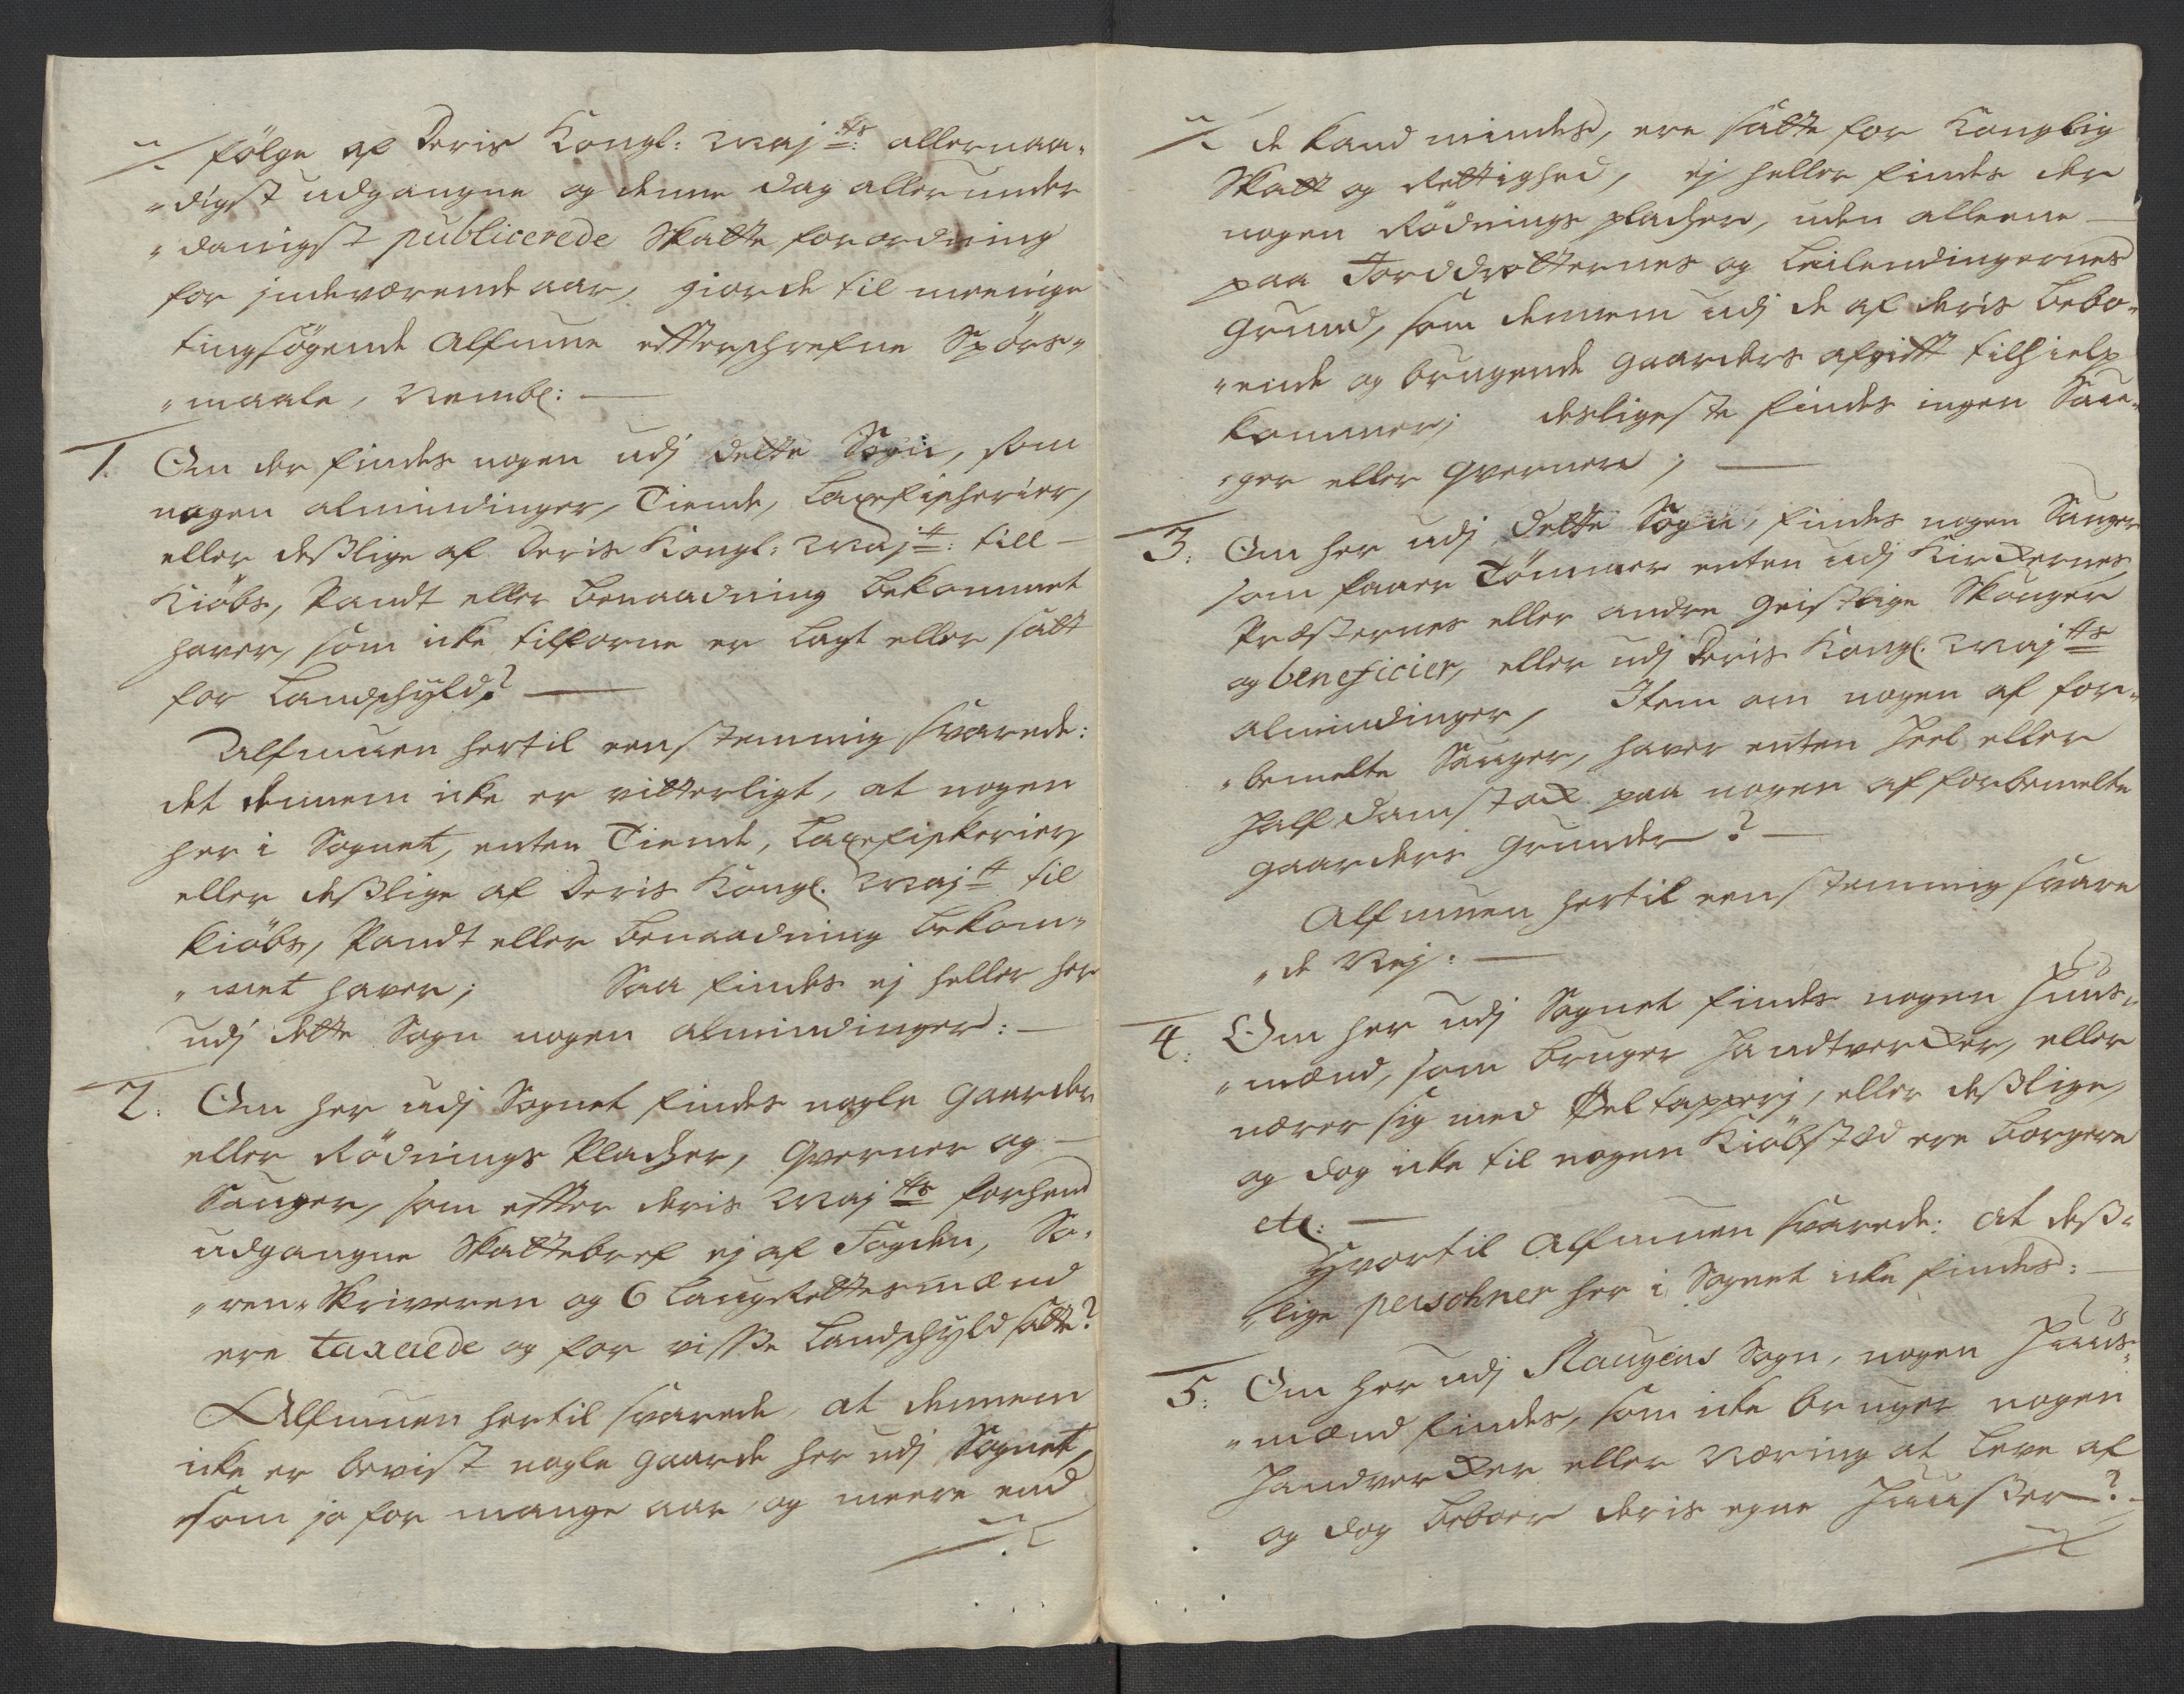 følge af Deris Kongl: Maj:ts: allernaa„
„digst udgangne og denne dag allerunder
„danigst publicerede Skatte forordning
for indeværende aar, giorde til meenige
tingsøgende Almue efterschrefne Spørs„
„maale, Nembl: —
1. Om der findes nogen udj dette Sogn, som
nogen almindinger, Tiende, Laxefischerier,
eller deßlige af Deris Kongl: Maj:t: till —
Kiøbs, Pandt eller benaadning bekommet
haver, som icke tilforne er lagt eller satt
for Landschyld? —
Almuen hertil eenstemmig svarede:
det dennem icke er vitterligt, at nogen
her i Sognet, enten Tiende, Laxefiskerier,
eller deßlige af Deris Kongl. Maj:t til
Kiøbs, Pandt eller benaadning bekom„
„met haver; Saa findes ej heller her
udj dette Sogn nogen almindinger: —
2: Om her udj Sognet findes nogle gaarder
eller Rødnings Pladser, qverner og —
Sauger, som efter deris Maj:ts forhend
udgangne Skattebref ej af Fogden, So„
„ren„skriveren og 6 Laugrettesmænd
ere taxerede og for visse Landschyld satte?
Almuen hertil svarede, at dennem
icke er bevist nogle gaarde her udj Sognet,
som jo for mange aar, og meere end
de kand mindes, ere satte for Konglig
Skatt og Rettighed, ej heller findes der
nogen Rødnings pladser, uden alleene —
paa Jorddrotternes og Leilendingernes
grund, som dennem udj de af deris bebo„
„ende og brugende gaarders afgift tilhielp
kommer; desligeste findes ingen Sau„
„ger eller qverner; —
3: Om her udj dette Sogn, findes nogen Sauger
som faaer Tømmer enten udj Kirckernes
Præsternes eller andre geistlige Skouger
og beneficier, eller udj Deris Kongl. Maj:ts
alminding­er, Item om nogen af for„
„bemelte Sauger, haver enten Heel eller
half damstock paa nogen af forbemelte
gaarders grunder? —
Almuen hertil eenstemmig svare
„de Nej: —
4: Om her udj Sognet findes nogen Huus„
„mænd, som bruger Handtvercker, eller
nærer sig med Øeltapperj, eller deßlige,
og dog icke til nogen Kiøbsted ere borgere
etc: —
Hvortil Almuen svarede: at deß„
„lige persohner her i Sognet icke findes: —
5: Om her udj Slaugens Sogn, nogen Huus„
„mænd findes, som icke bruger nogen
Handvercker eller Næring at leve af
og dog beboer deris egne Huußer? —